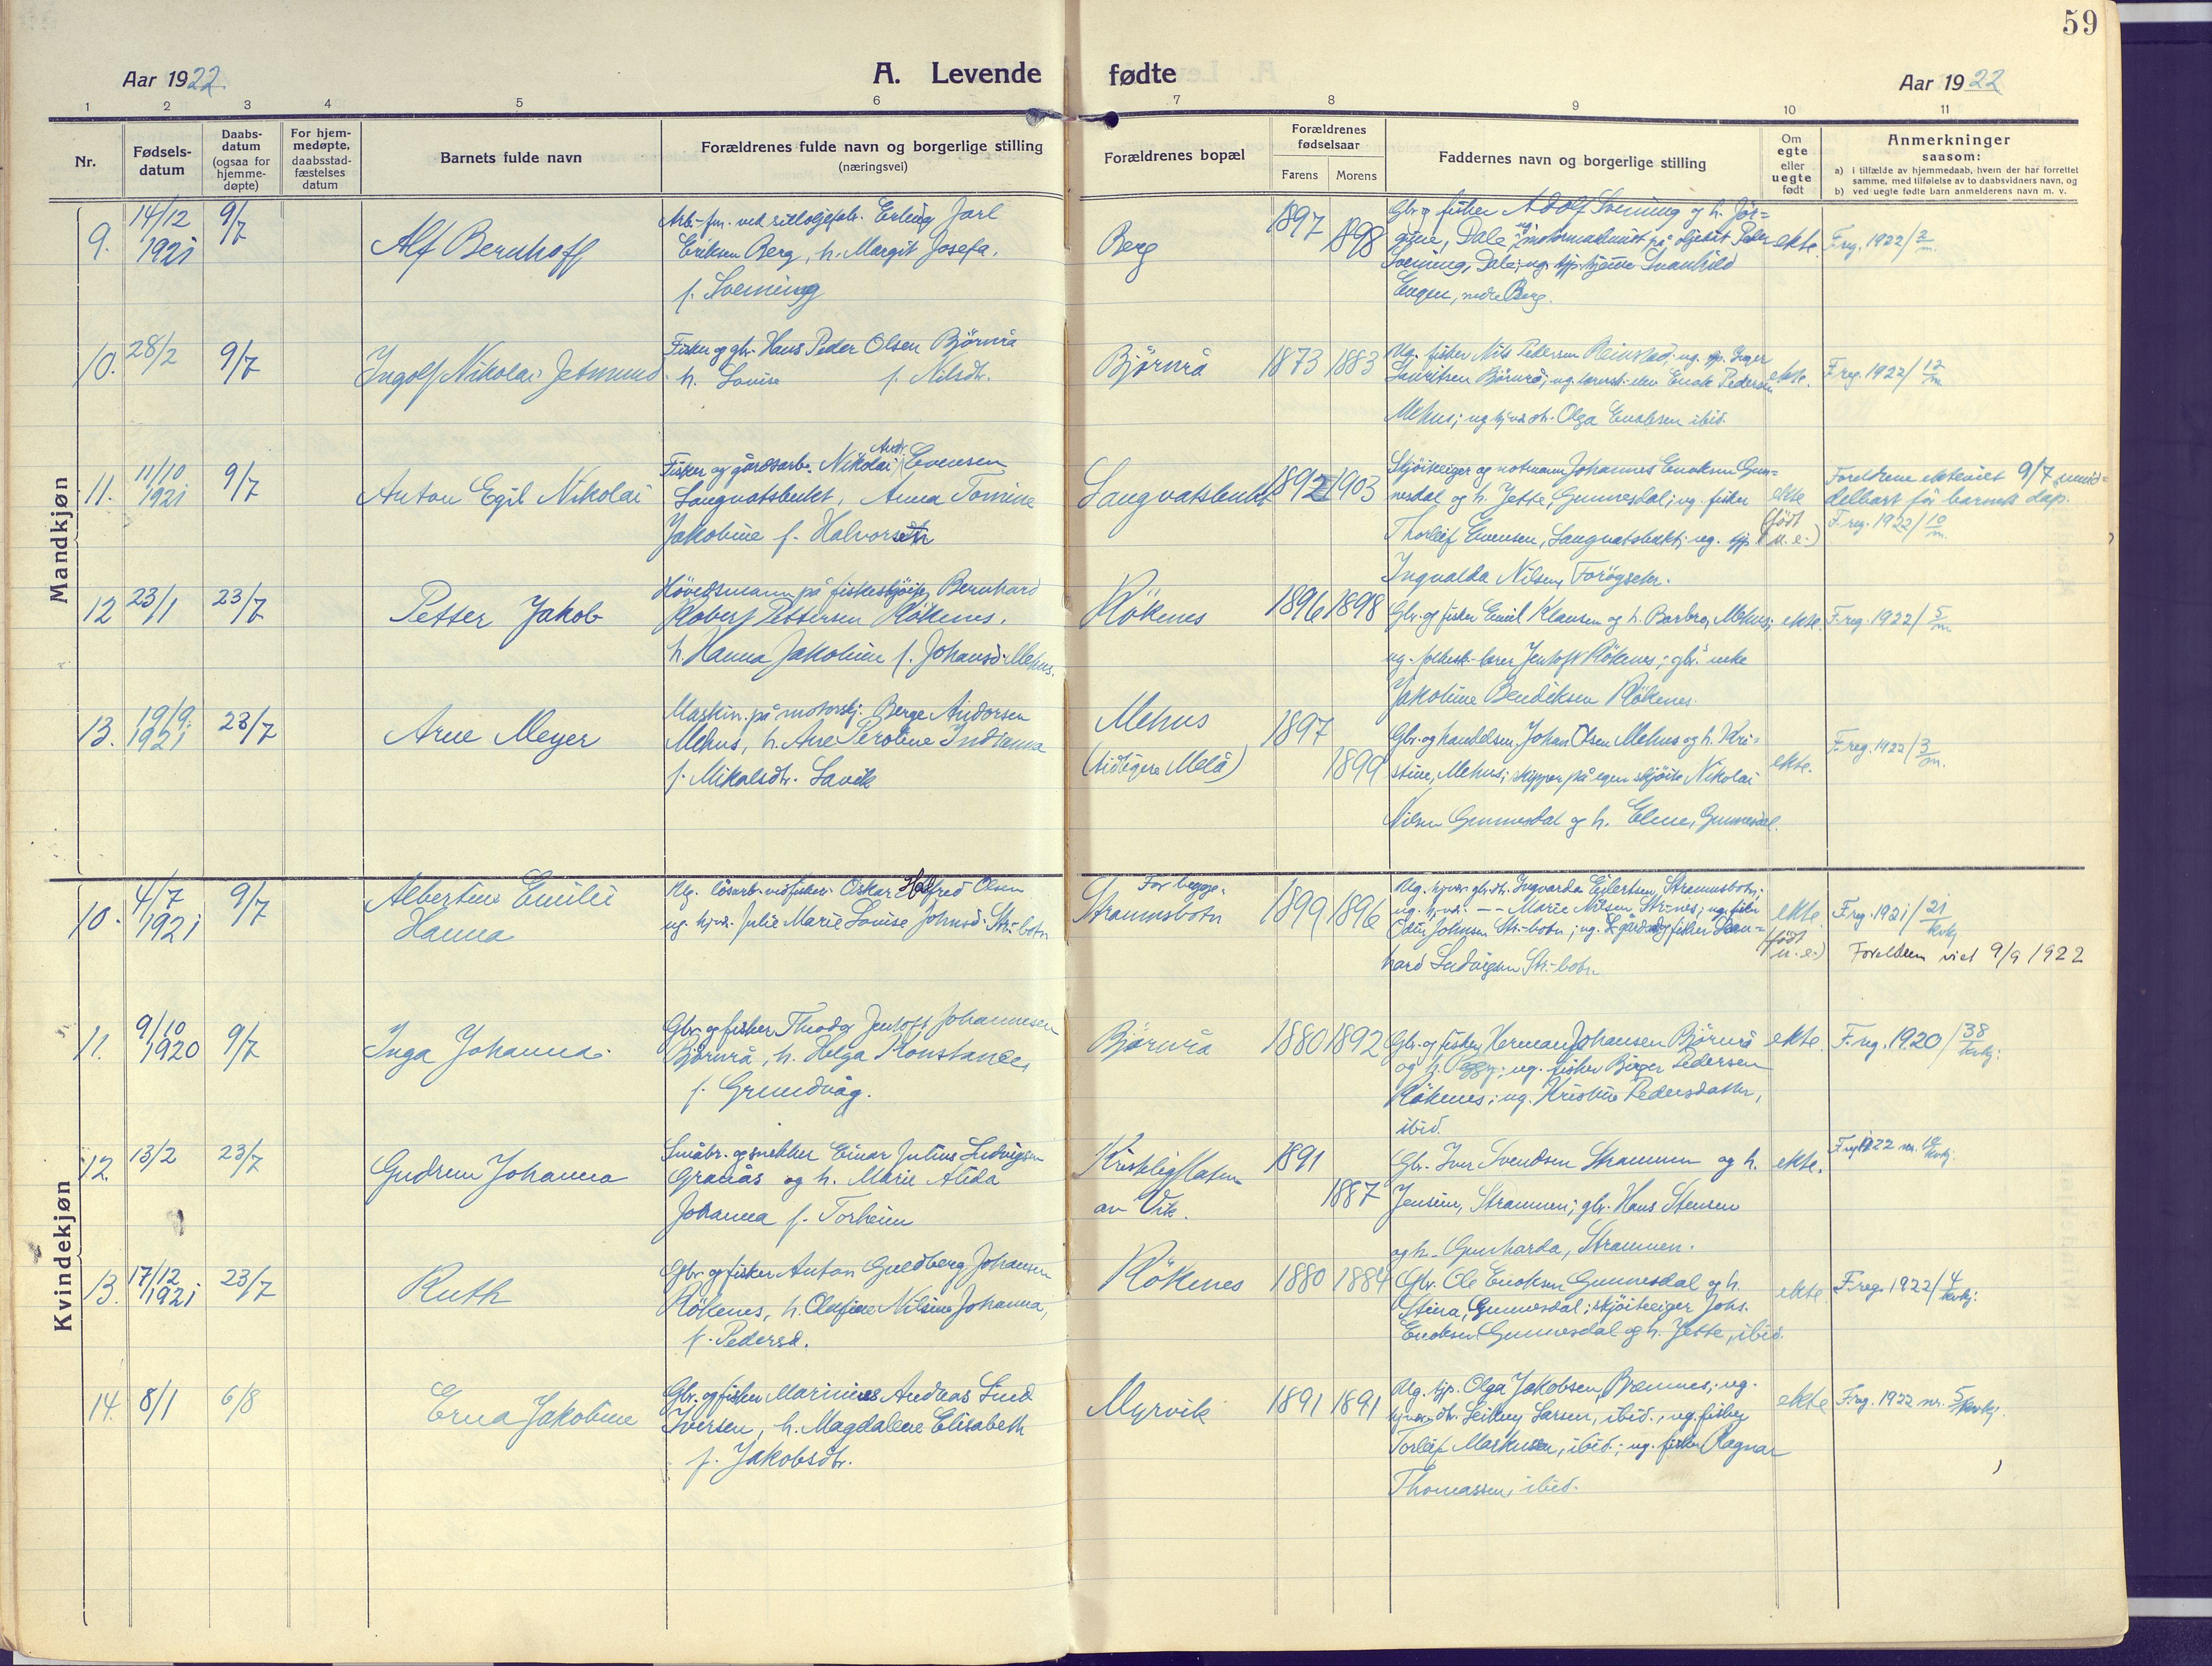 59
Aar 1922
A. Levende fødte
Aar 1922
1 2 3 4 5 6 7 8 9 10 11
Nr.
Fødsels-
datum
Daabs-
datum
(ogsaa for
hjemme-
døpte)
For hjem-
medøpte,
daabsstad-
fæstelses
datum
Barnets fulde navn
Forældrenes fulde navn og borgerlige stilling
(næringsvei)
Forældrenes bopæl
Forældrenes
fødselsaar
Farens Morens
Faddernes navn og borgerlige stilling
Om
egte
eller
uegte
født
Anmerkninger
saasom:
a) i tilfælde av hjemmedaab, hvem der har forrettet
samme, med tilføielse av to daabsvidners navn, og
b) ved uegte fødte barn anmelderens navn m. v.
Mandkjøn
9.
14/12
1921
9/7
Alf Bernhoff
Arb.-fm. ved sildoljefabr. Erling Jarl
Eriksen Berg, h. Margit Josefa,
f. Svening
Berg
1897
1898
Gbr. og fisker Adolf Svening og h. Jör-
gine, Dale; ug. motormaskinist på oljeskit Peder
Svening, Dale; ug. tjp. Svanhild
Engen, nedre Berg.
ekte.
F.reg. 1922/2 m.
10.
28/2
9/7
Ingolf Nikolai Jetmund
Fisker og gbr. Hans Peder Olsen Björnrå
h. Lovise f. Nilsdtr.
Björnrå
1873 1883
Ug. fisker Nils Pedersen Reinstad; ug. tjp. Inger
Lauritsen Björnrå; ug. lærersk.-elev Enok Pedersen
Mehus; ug. hjv. dtr. Olga Enoksen ibid.
ekte.
F.reg. 1922/12 m.
11.
11/10
1921
9/7
Anton Egil Nikolai
Fisker og gårdsarb. Nikolai Andr. Evensen
Langvatsbukt, Anna Tomine
Jakobine f. Halvorsdtr
Langvatsbukt
1892 1903
Skjöiteeiger og notmann Johannes Enoksen Gun-
nesdal og h. Jette, Gunnesdal; ug. fisker
Thorleif Evensen, Langvatsbukt; ug. tjp.
Ingvalda Nilsen, Foröyseter.
ekte
(födt
u.e.)
Foreldrene ektevied 9/7 umid-
delbart för barnets dåp.
F.reg. 1922/10 m.
12
23/1
23/7
Petter Jakob
Hövedsmann på fiskeskjöite Bernhard
Robert Pettersen Rökenes,
h. Hanna Jakobine f. Johansd. Mehus.
Rökenes
1896 1898
Gbr. og fisker Emil Klausen og h. Barbro, Mehus;
ug. folkesk.-lærer Jentoft Rökenes; gbr. enke
Jakobine Bendiksen Rökenes.
ekte.
F.reg. 1922/5 m
13.
19/9.
1921
23/7
Arne Meyer
Maskin. på motorskj. Berge Andorsen
Mehus, h. Ane Peroline Indianna
f. Mikalsdtr. Lavik
Mehus
(tidligere Melå)
1897
1899
Gbr. og handelsm. Johan Olsen Mehus og h. Kri-
stine, Mehus; skipper på egen skjöite Nikolai
Nilsen Gunnesdal og h. Eline, Gunnesdal.
ekte.
F.reg. 1922/3 m.
Kvindekjøn
10.
4/7
1921
9/7
Albertine Emilie
Hanna
Ug. lösarb. Oskar Halfred Olsen
ug. hjv. Julie Marie Lovise Johnsd. Str.-botn
For begge:
Straumsbotn
1899 1896
Ug. hjv. gbr.dtr. Ingvarda Eilertsen, Straumsbotn;
ug. hjv. —— Marie Nilsen Str.-nes; ug. fisker
Odin Johnsen Str.-botn; ug. gårdsarb. og fisker Leon-
hard Ludvigsen Str.-botn
ekte
(födt
u.e.)
F.reg. 1921/21 kvkj.
Foreldrene viet 9/9 1922
11.
9/10
1920
9/7
Inga Johanna.
Gbr. og fisker Theodor Jentoft Johannesen
Björnrå, h. Helga Konstance,
f. Grundvåg.
Björnrå
1880 1892
Gbr. og fisker Herman Johansen Björnrå
og h. Peggy; ug. fisker Birger Pedersen
Rökenes; ug. Kristine Pedersdatter,
ibid.
ekte.
F.reg. 1920/38 kvkj.
12.
13/2
23/7
Gudrun Johanna
Småbr. og snekker Einar Julius Ludvigsen
Granås og h. Marie Alida
Johanna f. Torheim
av Vik.
1891
1887
Gbr. Iver Svendsen Straumen og h.
Jensine, Straumen; gbr. Hans Stensen
og h. Gunharda, Straumen.
ekte.
F.reg. 1922 nr. 10 kvkj.
13.
17/12
1921
23/7
Ruth
Gbr. og fisker Anton Guldberg Johansen
Rökenes, h. Olufine Nilsine Johanna,
f. Pedersd.
Rökenes
1880 1884
Gbr. Ole Enoksen Gunnesdal og h.
Stina, Gunnesdal; skjöiteeiger Johs.
Enoksen Gunnesdal og h. Jette, ibid.
ekte
F.reg. 1922/4 kvkj.
14.
8/1
6/8
Erna Jakobine
Gbr. og fisker Marinius Andreas Lind
Iversen, h. Magdalene Elisabeth
f. Jakobsdtr.
Myrvik
1891 1891
Ug. tjp. Olga Jakobsen, Bremnes; ug.
hjv. dtr. Leikny Larsen, ibid.; ug. fisker
Torleif Markussen, ibid.; ug. fisker Ragnar
Thomassen, ibid.
ekte
F.reg. 1922 nr. 5 kvkj.